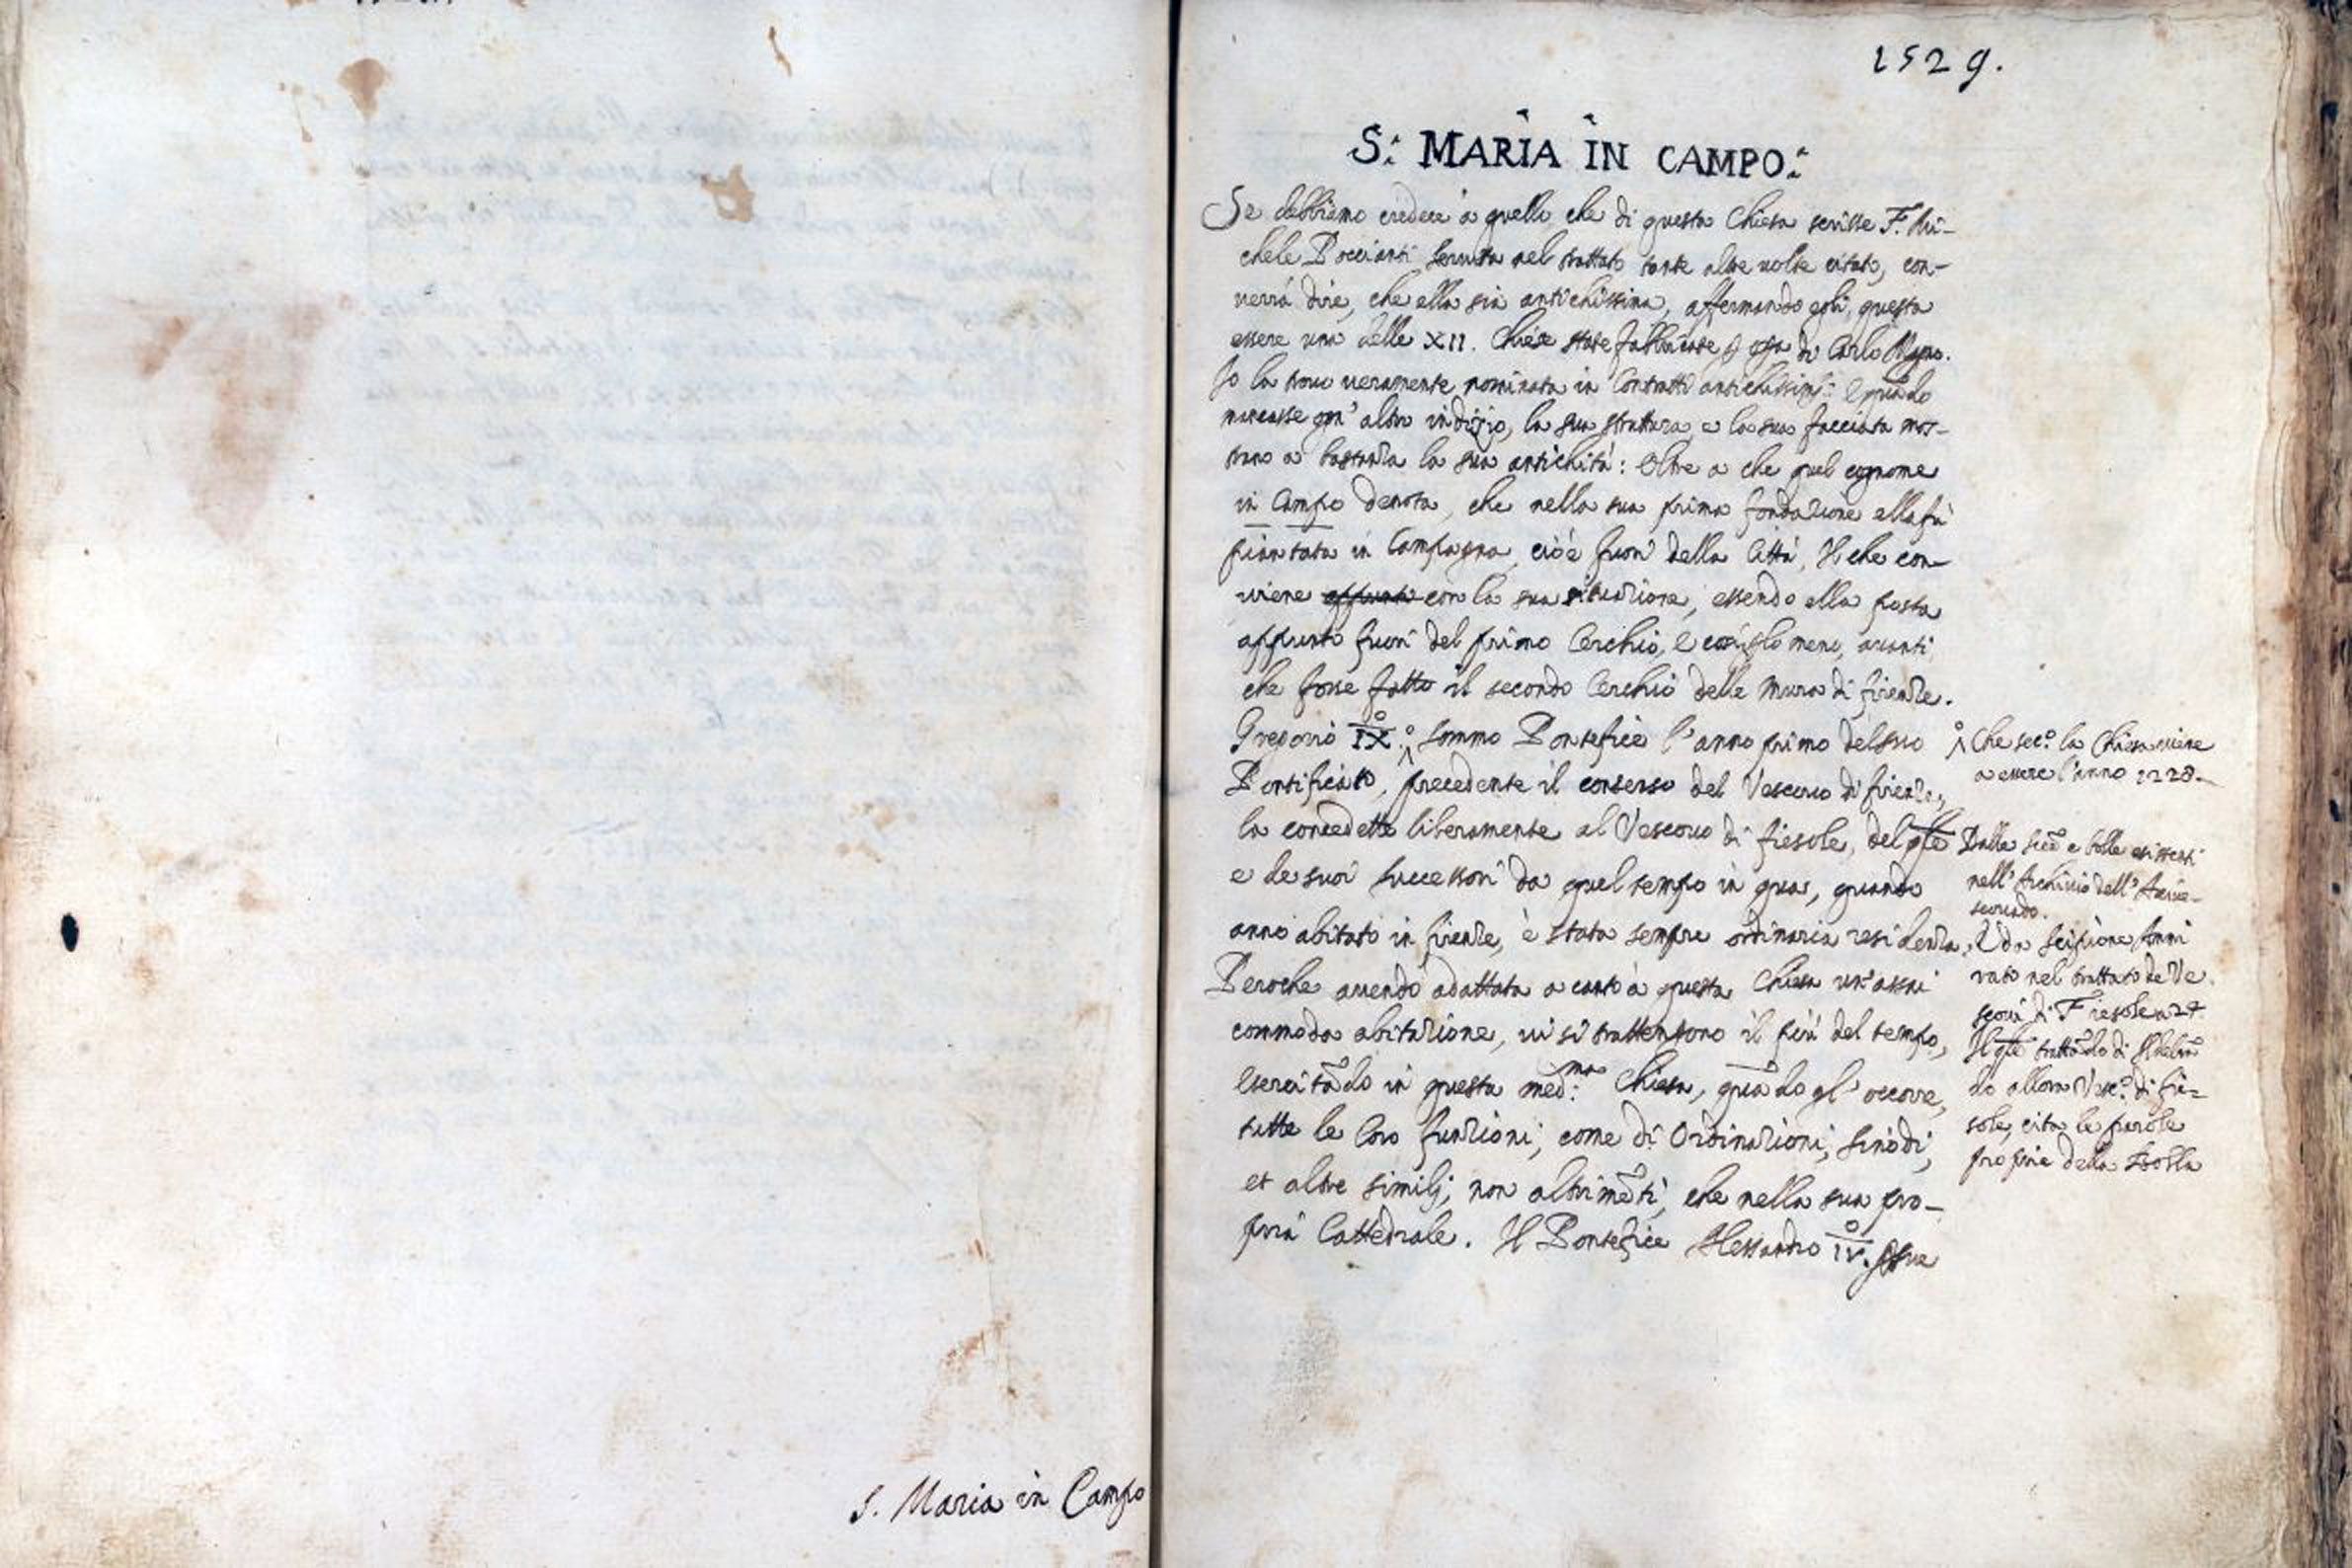 S. Maria in Campo
1529.
S.ᵃ MARIA IN CAMPO.
Se debbiamo credere a quello che di questa Chiesa scrisse F. Mi-
chele Poccianti Servita nel trattato tante altre volte citato, con-
verrà dire, che ella sia antichissima, affermando egli, questa
essere una delle XII. Chiese state fabbricate di Carlo Magno.
Io la trovo veramente nominata in Contratti antichissimi: E quãdo
mancasse ogn' altro indizio, la sua struttura e la sua facciata mos-
trano a bastanza la sua antichità: Oltre a che quel cognome
in Campo denota, che nella sua prima fondazione ella fù
piantata in Campagna, cioè fuori della Città, Il che con-
viene appunto con la sua situazione, essendo ella posta
appunto fuori del primo Cerchio, e avanti
che fosse fatto il secondo Cerchio delle Mura di firenze.
Gregorio IX.º sommo Pontefice l'anno primo del suo
Pontificato, precedente il consenso del Vescovo di firenze,
la concedette liberamente al Vescovo di fiesole, del qle
e de suoi successori da quel tempo in qua, quando
anno abitato in firenze, è stata sempre ordinaria residenza,
Peroche avendo adattata a canto à questa Chiesa un'assai
commoda abitazione, vi si trattengono il più del tempo,
Esercitãdo in questa med.ᵐᵃ Chiesa, quãdo gl' occorre,
tutte le loro funzioni, come di Ordinazioni, Sinodi,
et altre simili, non altrimẽti, che nella sua pro-
pria Cattedrale. Il Pontefice Alessandro IV.º
Che sec.º la Chiesa viene
a essere l'anno 1228.
Dalla e bolle esistenti
nell'Archivio dell'Arcive-
scovado.
E da Scipione Ammi
rato nel trattato de Ve
scovi di Fiesole a 24
Il qle trattãdo di Ildebrã
do allora Vesc.º di fie-
sole, cita le parole
proprie della Bolla